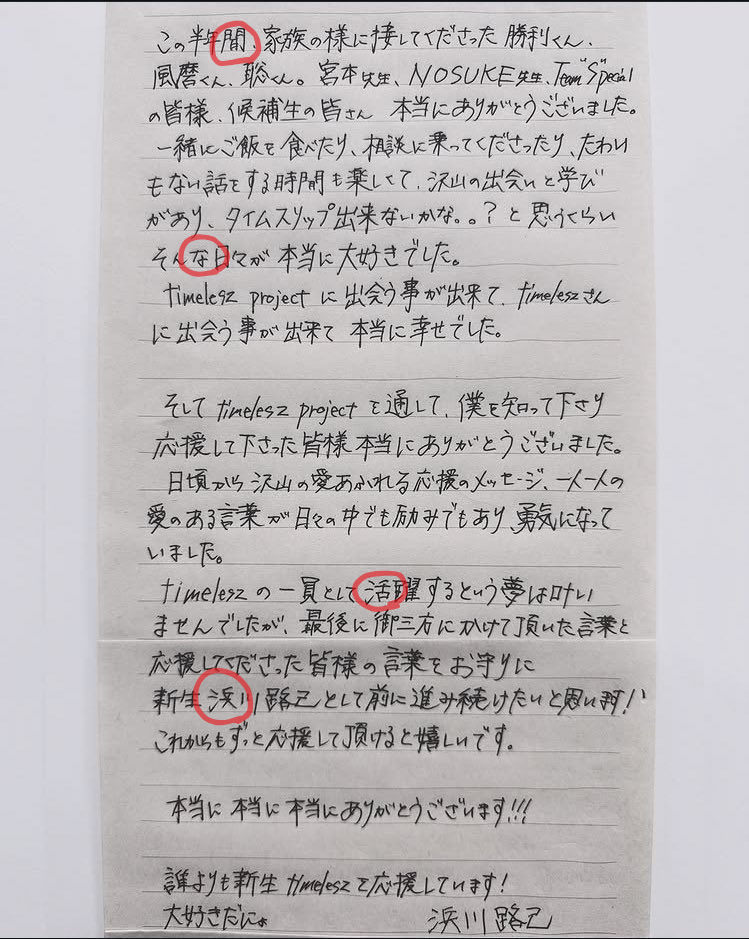 この半年間、家族の様に接してくださった 勝利くん、
風磨くん、聡くん。宮本先生、NOSUKE先生、Team"S"pecial
の皆様、候補生の皆さん 本当にありがとうございました。
一緒にご飯を食べたり、相談に乗ってくださったり、たわい
もない話をする時間も楽しくて、沢山の出会いと学び
があり、タイムスリップ出来ないかな。。?と思うくらい
そんな日々が本当に大好きでした。
timelesz project に出会う事が出来て、timeleszさん
に出会う事が出来て 本当に幸せでした。
そして timelesz project を通して、僕を知って下さり
応援して下さった皆様本当にありがとうございました。
日頃から沢山の愛あふれる応援のメッセージ、一人一人の
愛のある言葉が日々の中でも励みでもあり、勇気になって
いました。
timelesz の一員として活躍するという夢は叶い
ませんでしたが、最後に御三方にかけて頂いた言葉と
応援してくださった皆様の言葉をお守りに
新生 浜川路己として前に進み続けたいと思います!
これからもずっと応援して頂けると嬉しいです。
本当に 本当に 本当にありがとうございます!!!
誰よりも新生 timelesz を応援しています!
大好きだにょ 浜川路己